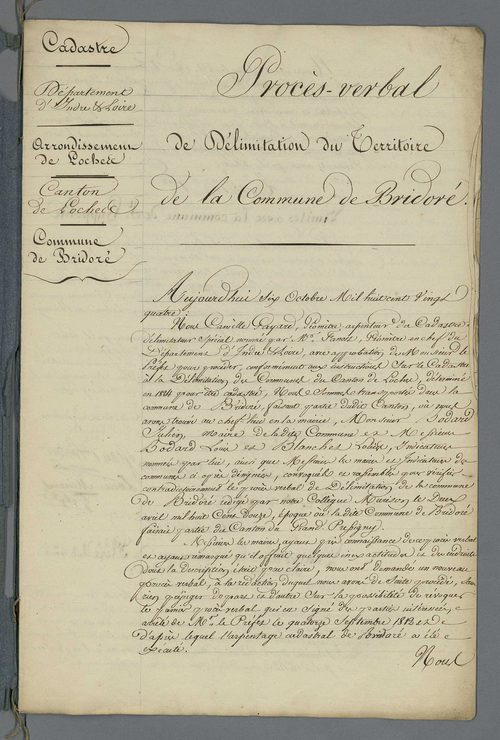 Cadastre
Département
d'Indre & Loire
Arrondissement
de Loches
Canton
de Loches
Commune
de Bridoré
Procès-verbal
de Délimitation du Territoire
de la Commune de Bridoré.
Aujourd'hui Six Octobre Mil huit cent Vingt
quatre;
Nous Camille Fayard, Géomètre arpenteur du Cadastre
délimitateur spécial nommé par Mr. Géomètre en chef du
Département d'Indre & Loire, avec approbation de Monsieur le
Préfet pour procéder, conformément aux instructions Sur le Cadastre
à la Délimitation des Communes du Canton de Loches, déterminé
en 1824 pour être cadastré, Nous Sommes transporté dans la
commune de Bridoré, faisant partie dudit Canton, où nous
avons trouvé au chef lieu en la mairie, Monsieur Godard
Julien, maire de la dite Commune et Messieurs
Godard Louis et Blanchet Indicateurs
nommés par lui, ainsi que Messieurs les maires et Indicateurs des
communes ci après désignées, convoqués et rassemblés pour vérifier
contradictoirement le procès verbal de Délimitation de la commune
de Bridoré rédigé par notre Collègue le Deux
avril mil huit Cent Douze, époque où la dite Commune de Bridoré
faisait partie du Canton du Grand Pressigny.
Messieurs les maires, ayant pris connaissance de ce procès verbal
et ayant remarqué qu'il offrait quelques inexactitudes et
dont la description était peu claire, nous ont demandé un nouveau
procès verbal, à la rédaction duquel nous avons de suite procédé, sans
rien préjuger de part et d'autre Sur la possibilité de révoquer
le premier procès verbal qui est Signé des parties intéressées, et
arrêté de Mr. le Préfet le quatorze Septembre 1812 et
d'après lequel l'arpentage cadastral de Bridoré a été
exécuté.
Nous